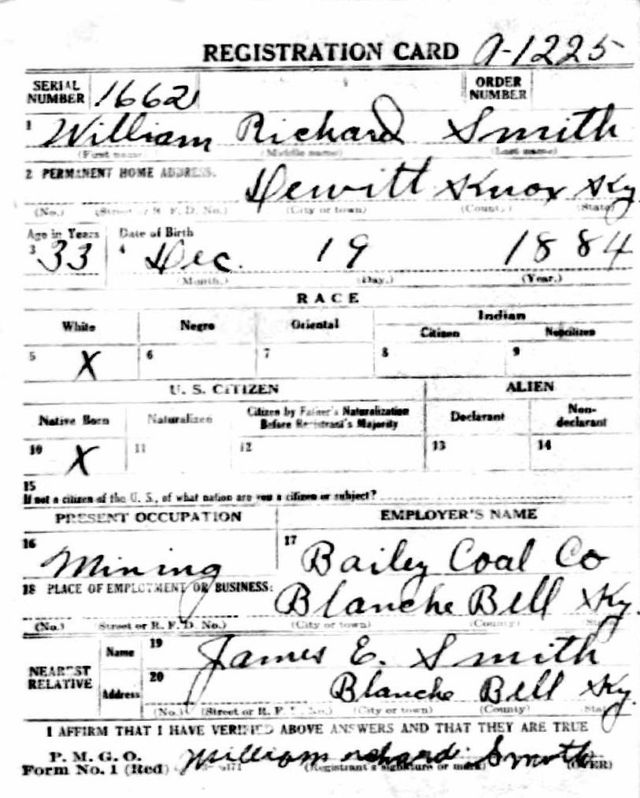 REGISTRATION CARD A-1225
SERIAL NUMBER 1662 ORDER NUMBER
1 William Richard Smith
(First name) (Middle name) (Last name)
2 PERMANENT HOME ADDRESS: Dewitt Knox Ky
(No.) (Street or R. F. D. No.) (City or town) (County) (State)
Age in Years Date of Birth
3 33 4 Dec. 19 1884
(Month.) (Day.) (Year.)
RACE
White Negro Oriental Indian
Citizen Noncitizen
5 X 6 7 8 9
U. S. CITIZEN ALIEN
Native Born Naturalized Citizen by Father's Naturalization Before Registrant's Majority Declarant Non-declarant
10 X 11 12 13 14
15
If not a citizen of the U. S., of what nation are you a citizen or subject?
PRESENT OCCUPATION EMPLOYER'S NAME
16 Mining 17 Bailey Coal Co
18 PLACE OF EMPLOYMENT OR BUSINESS: Blanche Bell Ky.
(No.) Street or R. F. D. No.) (City or town) (County) State
NEAREST RELATIVE Name 19 James E. Smith
Address 20 Blanche Bell Ky.
(No.) (Street or R. F. D. No.) (City or town) (County) (State
I AFFIRM THAT I HAVE VERIFIED ABOVE ANSWERS AND THAT THEY ARE TRUE
P. M. G. O.
Form No. 1 (Red) William richard Smith
(Registrant's signature or mark) (OVER)